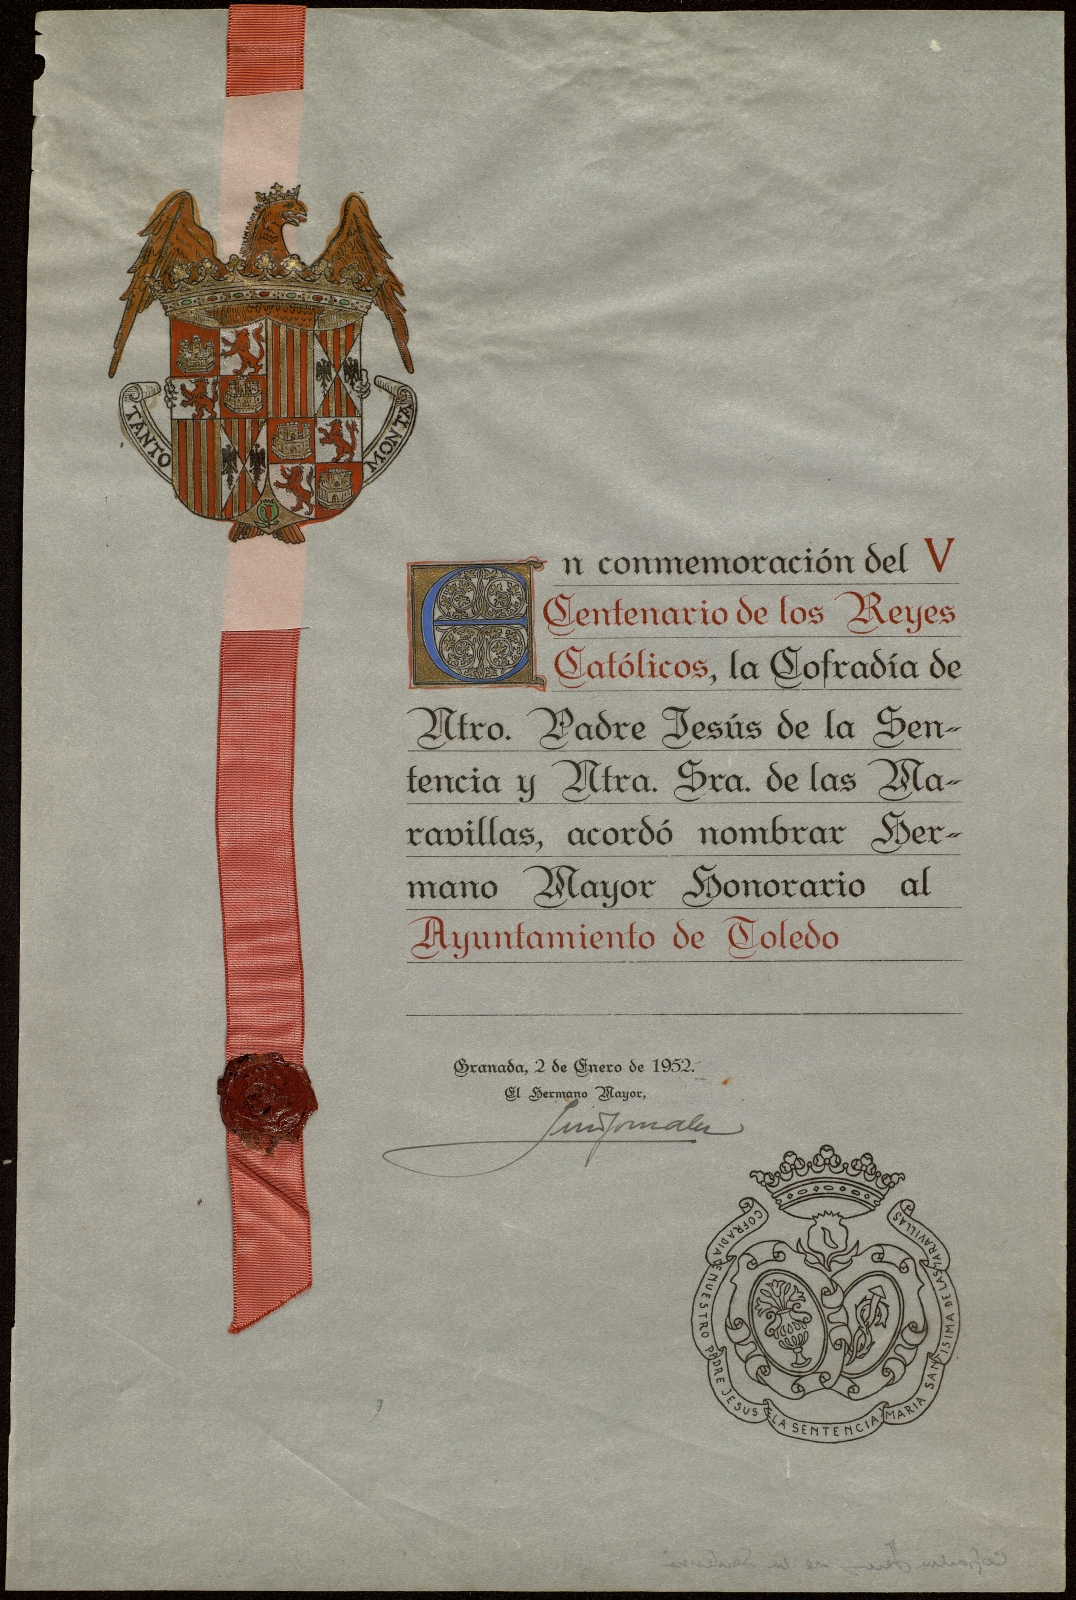 TANTO MONTA
En conmemoración del V
Centenario de los Reyes
Católicos, la Cofradía de
Ntro. Padre Jesús de la Sen-
tencia y Ntra. Sra. de las Ma-
ravillas, acordó nombrar Her-
mano Mayor Honorario al
Ayuntamiento de Toledo
Granada, 2 de Enero de 1952.
El Hermano Mayor,
COFRADIA DE NUESTRO PADRE JESUS DE LA SENTENCIA Y MARIA SANTISIMA DE LAS MARAVILLAS